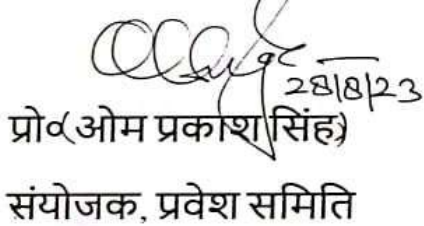 28/8/23
प्रो०(ओम प्रकाश सिंह)
संयोजक, प्रवेश समिति